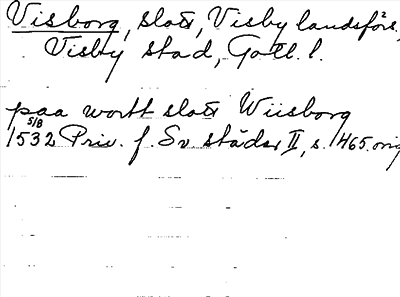 Visborg, slott, Visby landsförs.²,
Visby stad, Gotl. l.
paa wortt slott Wiisborg
1532 5/8 Priv. f. Sv städer II, s. 1465. orig